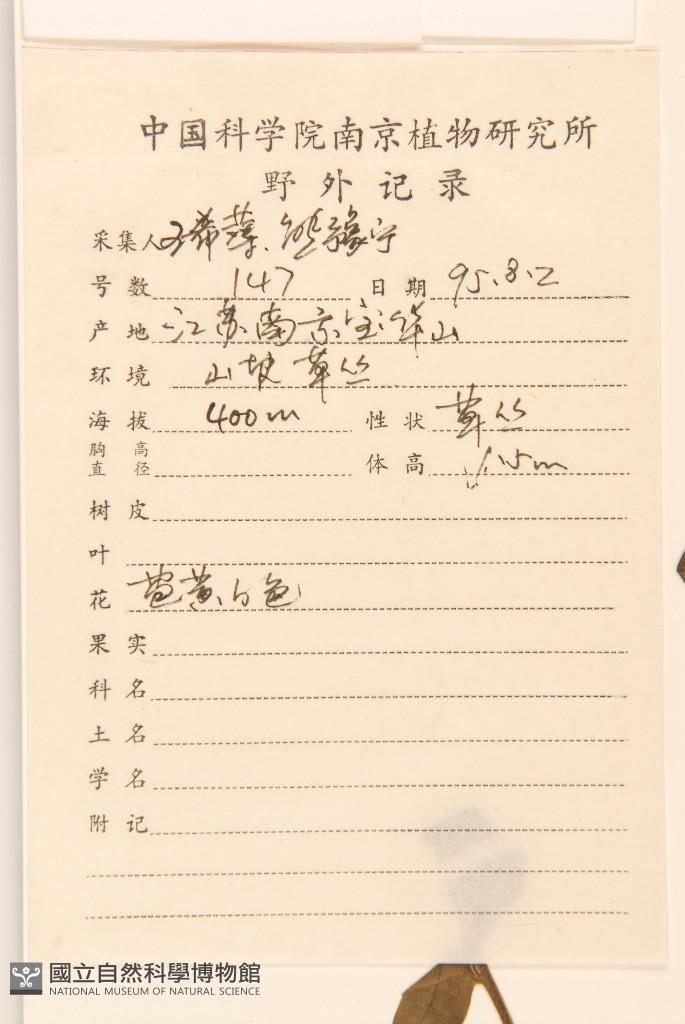 中国科学院南京植物研究所
野外记录
采集人 王希蕖、熊豫宁
号数 147 日期 95.8.2
产地 江苏南京宝华山
环境 山坡草丛
海拔 400m 性状 草丛
胸高直径 体高 1.5m
树皮
叶
花 黄白色
果实
科名
土名
学名
附记
國立自然科學博物館
NATIONAL MUSEUM OF NATURAL SCIENCE